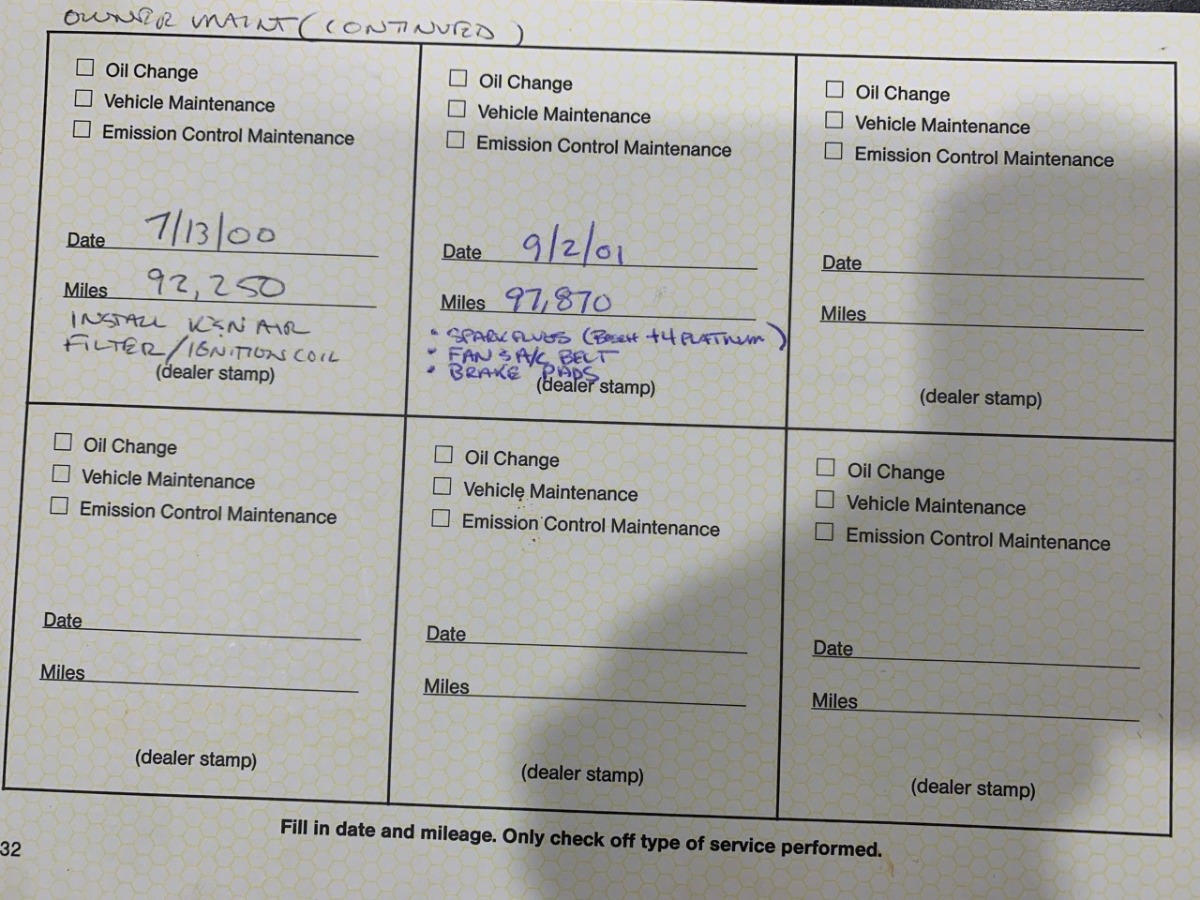 OWNER MAINT (CONTINUED)
Oil Change
Vehicle Maintenance
Emission Control Maintenance
Date 7/13/00
Miles 92,250
INSTALL K&N AIR
FILTER/IGNITION COIL
(dealer stamp)
Oil Change
Vehicle Maintenance
Emission Control Maintenance
Date 9/2/01
Miles 97,870
• SPARK PLUGS (BOSCH +4 PLATINUM)
• FAN & A/C BELT
• BRAKE PADS
(dealer stamp)
Oil Change
Vehicle Maintenance
Emission Control Maintenance
Date
Miles
(dealer stamp)
Oil Change
Vehicle Maintenance
Emission Control Maintenance
Date
Miles
(dealer stamp)
Oil Change
Vehicle Maintenance
Emission Control Maintenance
Date
Miles
(dealer stamp)
Oil Change
Vehicle Maintenance
Emission Control Maintenance
Date
Miles
(dealer stamp)
Fill in date and mileage. Only check off type of service performed.
32